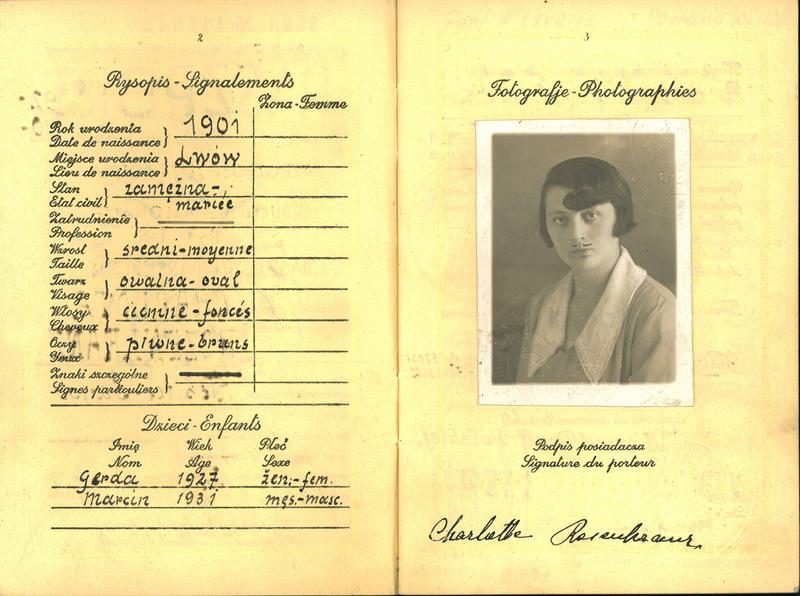 2
Rysopis - Signalements
Żona - Femme
Rok urodzenia
Date de naissance
1901
Miejsce urodzenia
Lieu de naissance
Lwów
Stan
Etat civil
zamężna -
mariée
Zatrudnienie
Profession
Wzrost
Taille
średni - moyenne
Twarz
Visage
owalna - oval
Włosy
Cheveux
ciemne - foncés
Oczy
Yeux
piwne - bruns
Znaki szczególne
Signes particuliers
Dzieci - Enfants
Imię Wiek Płeć
Nom Age Sexe
Gerda 1927 żeń. - fem.
Marcin 1931 męs. - masc.
3
Fotografje - Photographies
Podpis posiadacza
Signature du porteur
Charlotte Rosenkranz